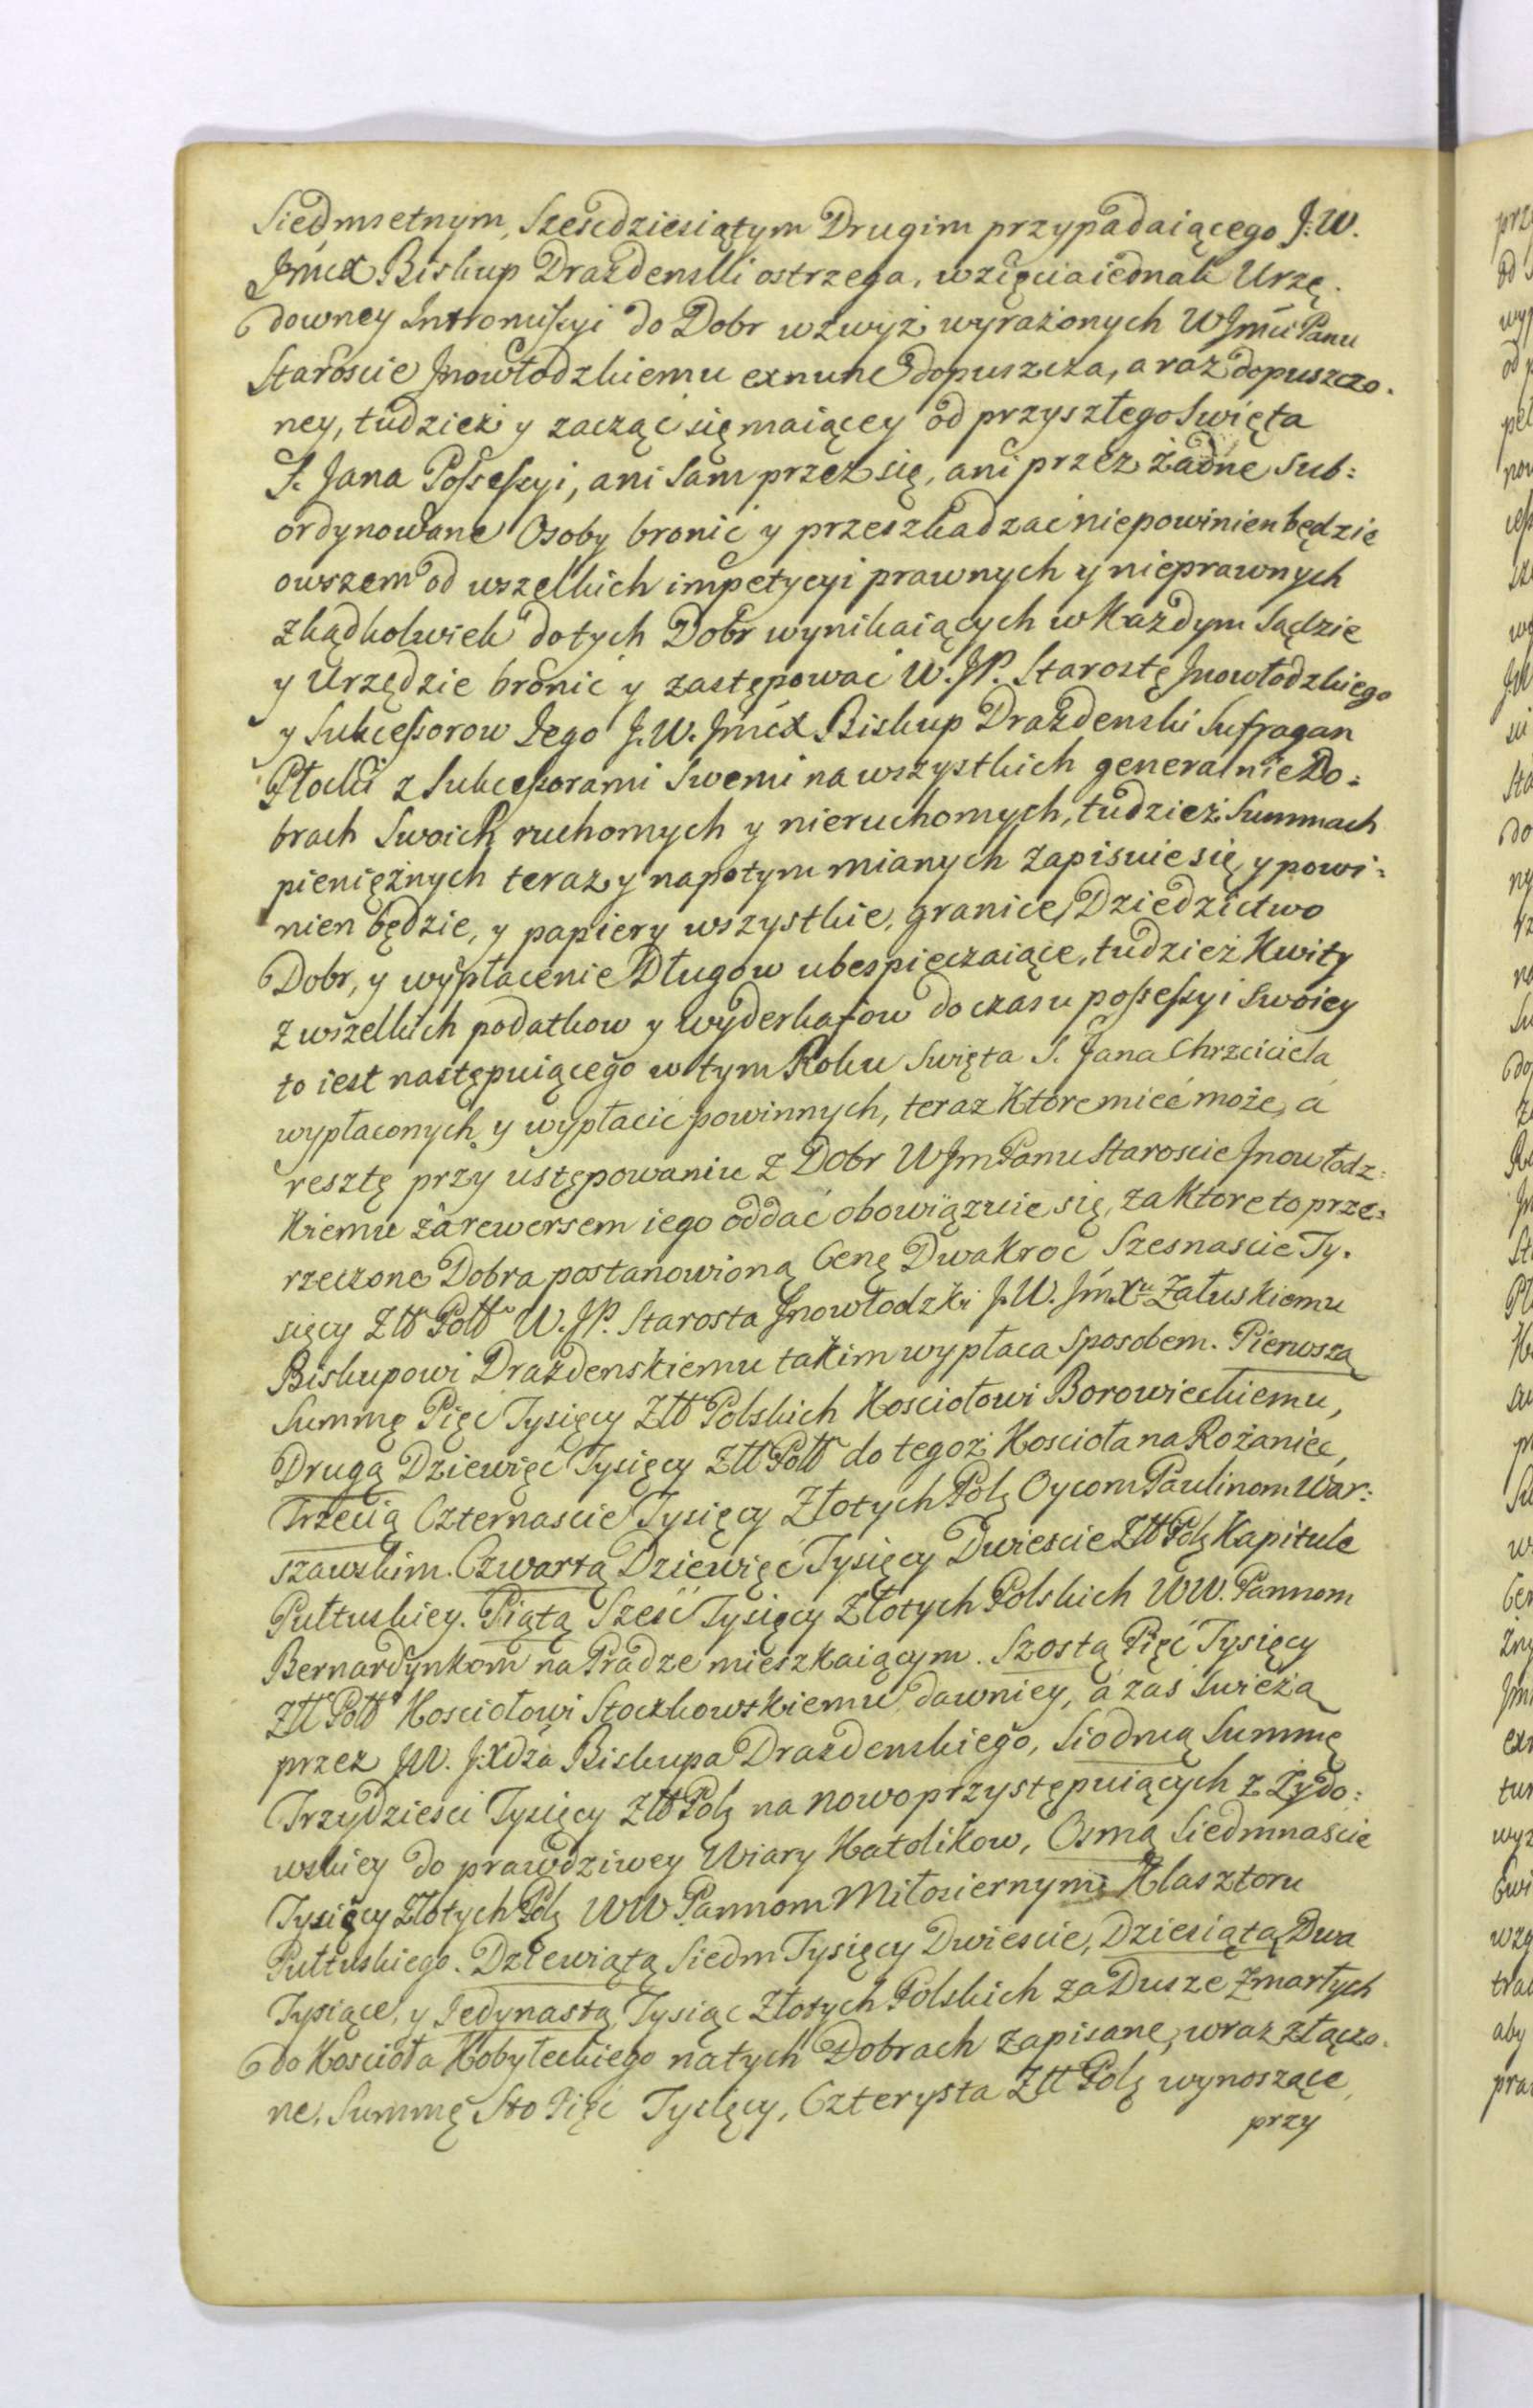 Siedmsetnym, Szescdziesiątym Drugim przypadaiącego J:W.
Jmcx Biskup Drazdenski ostrzega, wzięcia iednak Urzę.
downey Intromissyi do Dobr wzwyż wyrażonych WJmci Panu
Staroscie Jnowłodzkiemu exnunc dopuszcza, a raz dopuszczo.
ney, tudzież y zacząć się maiącey od przyszłego Swięta
S. Jana Possessyi, ani Sam przez się, ani przez żadne Sub:
ordynowane Osoby bronić y przeszkadzać niepowinien będzie
owszem od wszelkich impetycyi prawnych y nieprawnych
zkądkolwiek do tych Dobr wynikaiących w Każdym Sądzie
y Urzędzie bronić y zastępować W. JP. Starostę Jnowłodzkiego
y Sukcessorow Jego J.W. Jmcx Biskup Drazdenski Sufragan
Płocki z Sukcessorami Swemi na wszystkich generalnie Do:
brach Swoich ruchomych y nieruchomych, tudzież Summach
pieniężnych teraz y napotym mianych zapisuie się, y powi:
nien będzie, y papiery wszystkie, granice, Dziedzictwo
Dobr, y wypłacenie Długow ubespieczaiące, tudzież Kwity
z wszelkich podatkow y wyderkafow do czasu possessyi Swoiey
to iest następuiącego w tym Roku Swięta S. Jana Chrzciciela
wypłaconych y wypłacić powinnych, teraz Ktore mieć może, a
resztę przy ustępowaniu z Dobr WJm Panu Staroscie Jnowłodz:
Kiemu za rewersem iego oddać obowiązuie się, za Ktore to prze:
rzeczone Dobra postanowioną Cenę Dwakroć Szesnascie Ty.
sięcy Złł Poll W. JP. Starosta Jnowłodzki J.W. Jmxu Załuskiemu
Biskupowi Drazdenskiemu takim wypłaca Sposobem. Pierwszą
Summę Pięć Tysięcy Złł Polskich Kosciołowi Borowieckiemu,
Drugą Dziewięć Tysięcy Złł Poll do tegoż Kosciola na Rożaniec,
Trzecią Czternascie Tysięcy Złotych Pols Oycom Paulinom War:
szawskim. Czwartą Dziewięć Tysięcy Dwiescie Złł Pols Kapitule
Pułtuskiey. Piątą Sześć Tysięcy Złotych Polskich WW. Pannom
Bernardynkom na Pradze mieszkaiącym. Szostą Pięć Tysięcy
Złł Poll Kosciołowi Stoczkowskiemu dawniey, a zas Swieżą
przez JW. J:Xdza Biskupa Drazdenskiego, Siodmą Summę
Trzydziesci Tysięcy Złł Pols na nowo przystępuiących z Żydo:
wskiey do prawdziwey Wiary Katolikow, Osmą Siedmnaście
Tysięcy Złotych Pols WW Pannom Miłosiernym Klasztoru
Pułtuskiego. Dziewiątą Siedm Tysięcy Dwiescie, Dziesiątą Dwa
Tysiące, y Jedynastą Tysiąc Złotych Polskich za Dusze Zmarłych
do Kosciola Kobyłeckiego na tych Dobrach zapisane, wraz złączo.
ne, Summę Sto Pięć Tysięcy, Czterysta Złł Pols wynoszące
przy